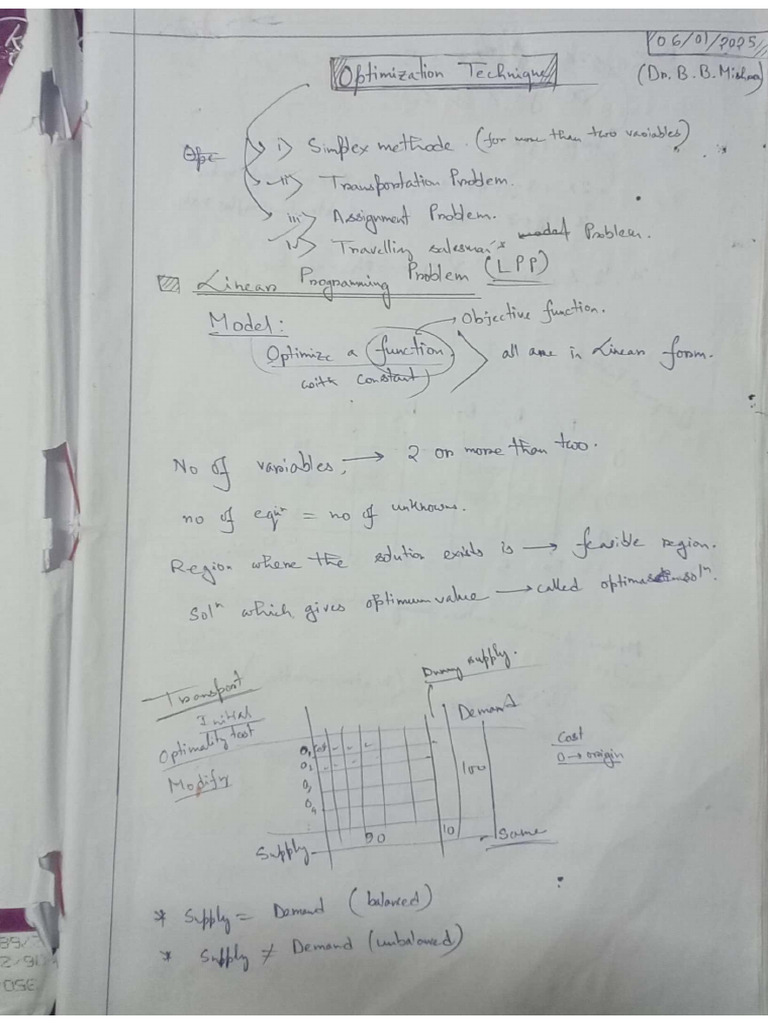 06/01/2025
Optimization Technique
(Dr. B. B. Mishra)
i) Simplex methode. (for more than two variables)
ii) Transportation Problem.
iii) Assignment Problem.
iv) Travelling salesman's Problem.
Linear Programming Problem (LPP)
Model:
Objective function.
Optimize a function
with constant
all are in Linear form.
No of variables, → 2 or more than two.
no of eqnˢ = no of unknowns.
Region where the solution exists is → feasible region.
Solⁿ which gives optimum value → called optimal solⁿ.
Transport
Initial
Optimality test
Modify
Dummy supply.
Demand
O₁ cost
O₂
O₃
O₄
100
Cost
O → origin
Supply
90
10
Same
* Supply = Demand (balanced)
* Supply ≠ Demand (unbalanced)